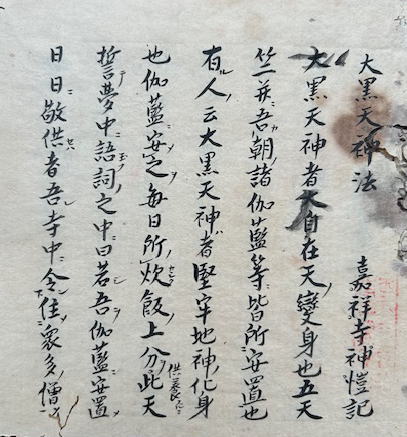 大黑天神法 嘉祥寺神愷記
大黑天神者大自在天變身也五天
竺并吾朝諸伽藍等皆所安置也
有人云大黑天神者堅牢地神化身
也伽藍安之每日所炊飯上分供養此天
誓夢中語詞之中曰若吾伽藍安置
日日敬供者吾寺中令住衆多僧